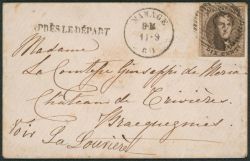 APRÈS-LE-DÉPART
MANAGE
11-9
Madame
La Comtesse Giuseppe de Maria
Château de Trivières
Bracquegnies
Voir La Louvière